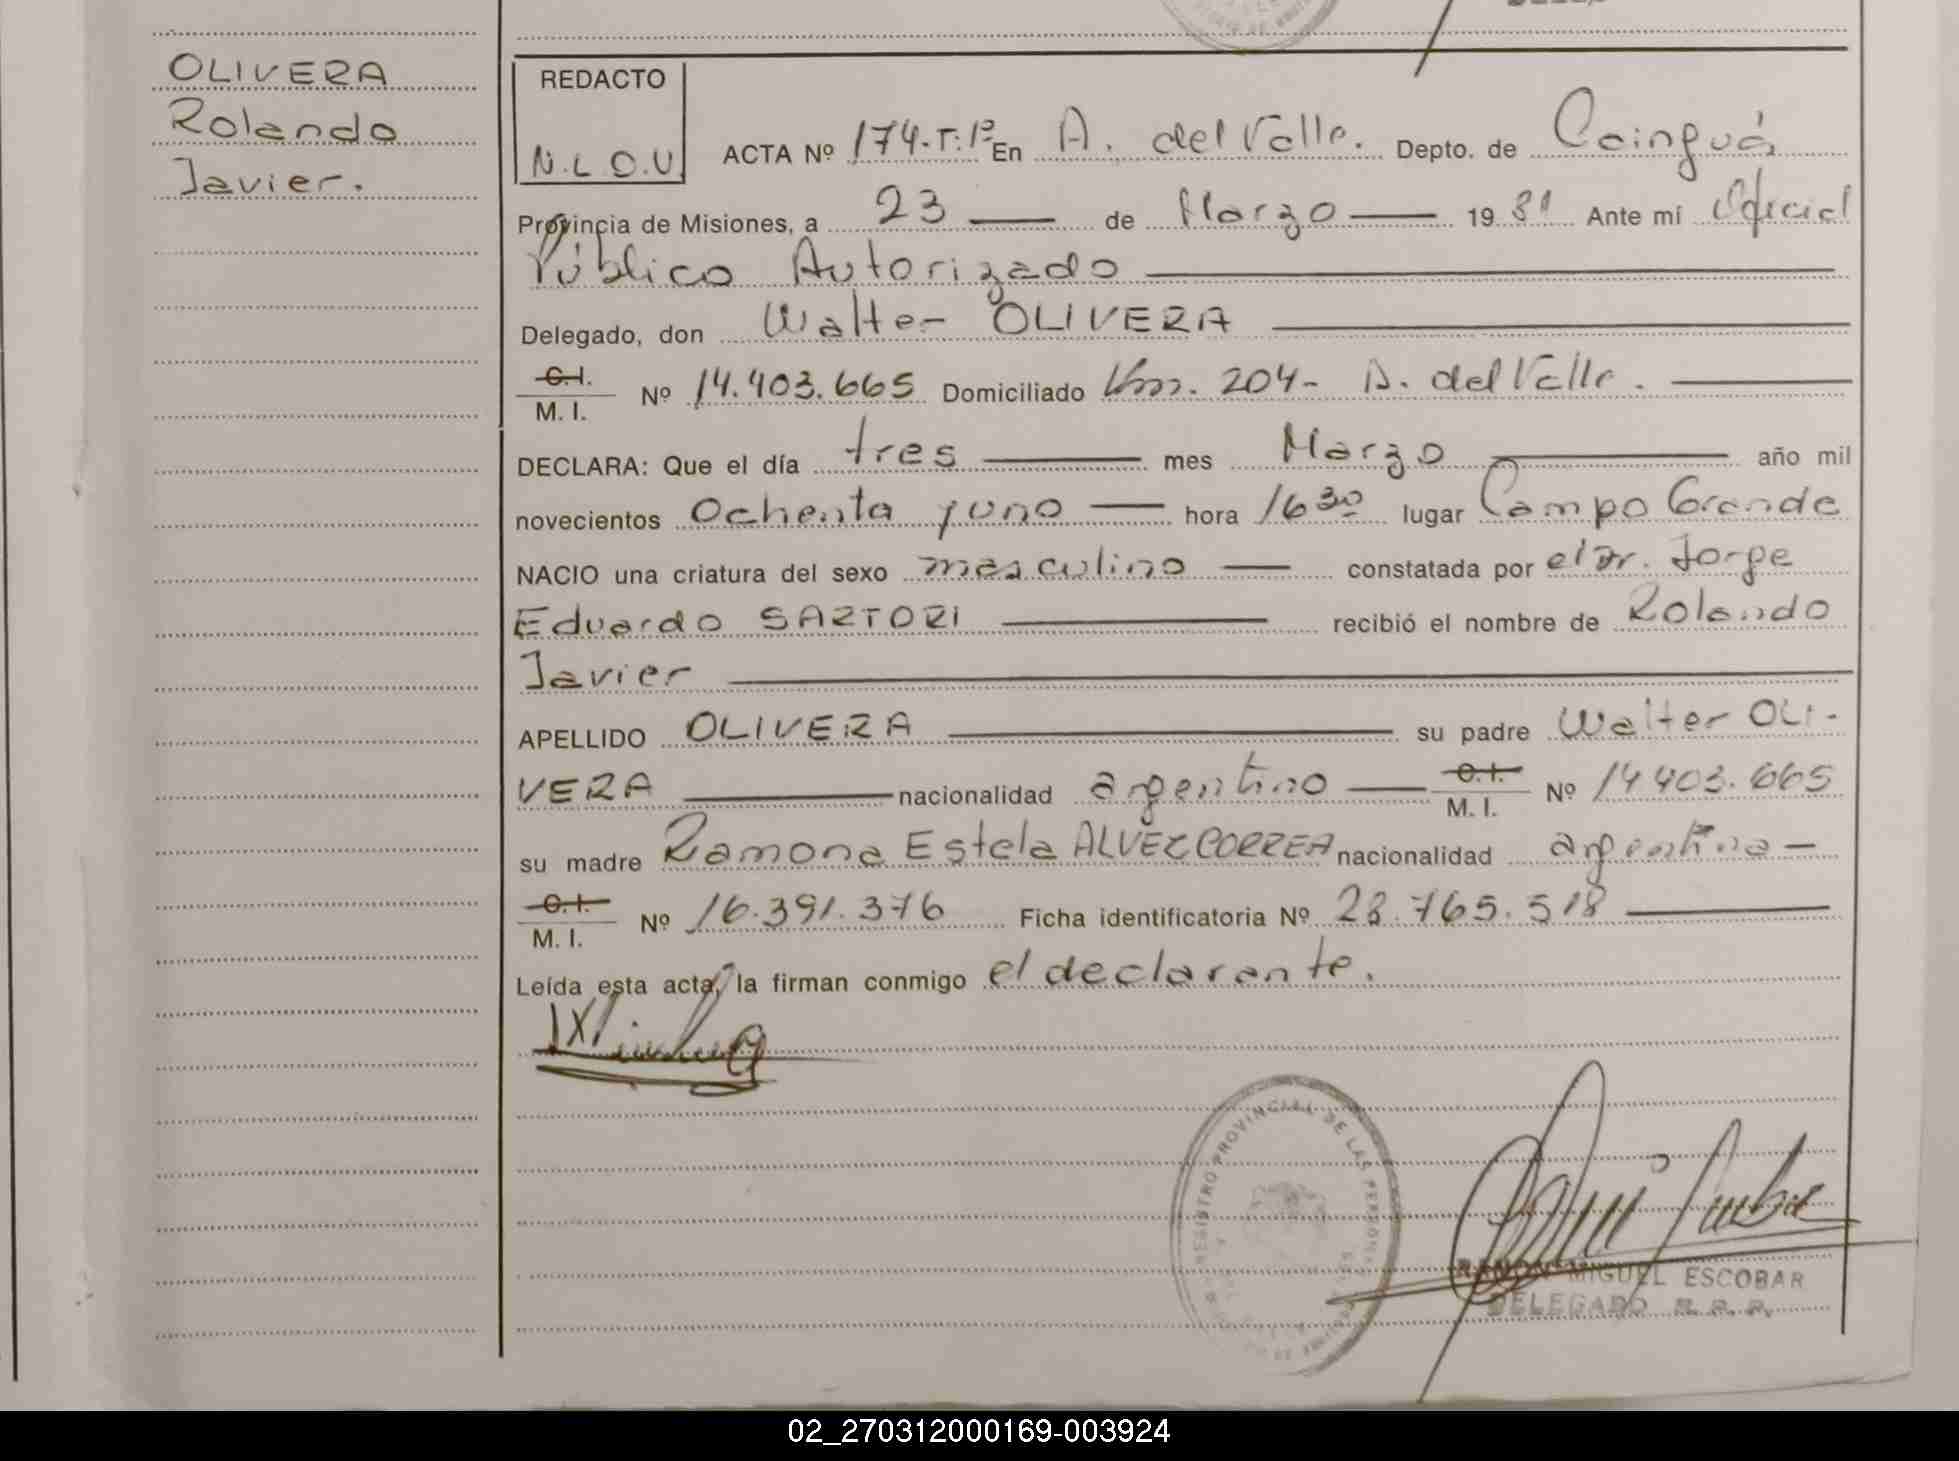 OLIVERA
Rolando
Javier.
REDACTO
N.L.O.V.
ACTA Nº 174.T.1º En A. del Valle. Depto. de Cainguás
Provincia de Misiones, a 23 de Marzo 1981 Ante mí Oficial
Público Autorizado
Delegado, don Walter OLIVERA
C.I.
M. I. Nº 14.403.665 Domiciliado Km. 204- A. del Valle.
DECLARA: Que el día tres mes Marzo año mil
novecientos Ochenta y uno hora 16 30 lugar Campo Grande
NACIO una criatura del sexo masculino constatada por el Dr. Jorge
Eduardo SARTORI recibió el nombre de Rolando
Javier
APELLIDO OLIVERA su padre Walter OLI-
VERA nacionalidad argentino C.I. M. I. Nº 14403.665
su madre Ramona Estela ALVEZ CORREA nacionalidad argentina
C.I.
M. I. Nº 16.391.376 Ficha identificatoria Nº 28.765.518
Leída esta acta, la firman conmigo el declarante.
REGISTRO PROVINCIAL DE LAS PERSONAS
RAMON MIGUEL ESCOBAR
DELEGADO R. P. P.
02_270312000169-003924